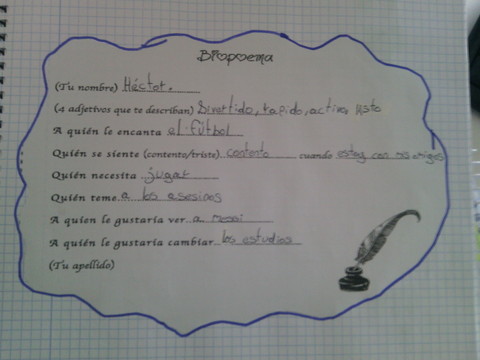 Biopoema
(Tu nombre) Héctor.
(4 adjetivos que te describan) Divertido, rapido, activo, listo
A quién le encanta el fútbol
Quién se siente (contento/triste) contento cuando estoy con mis amigos
Quién necesita jugar
Quién teme a los asesinos
A quien le gustaría ver a messi
A quién le gustaría cambiar los estudios
(Tu apellido)